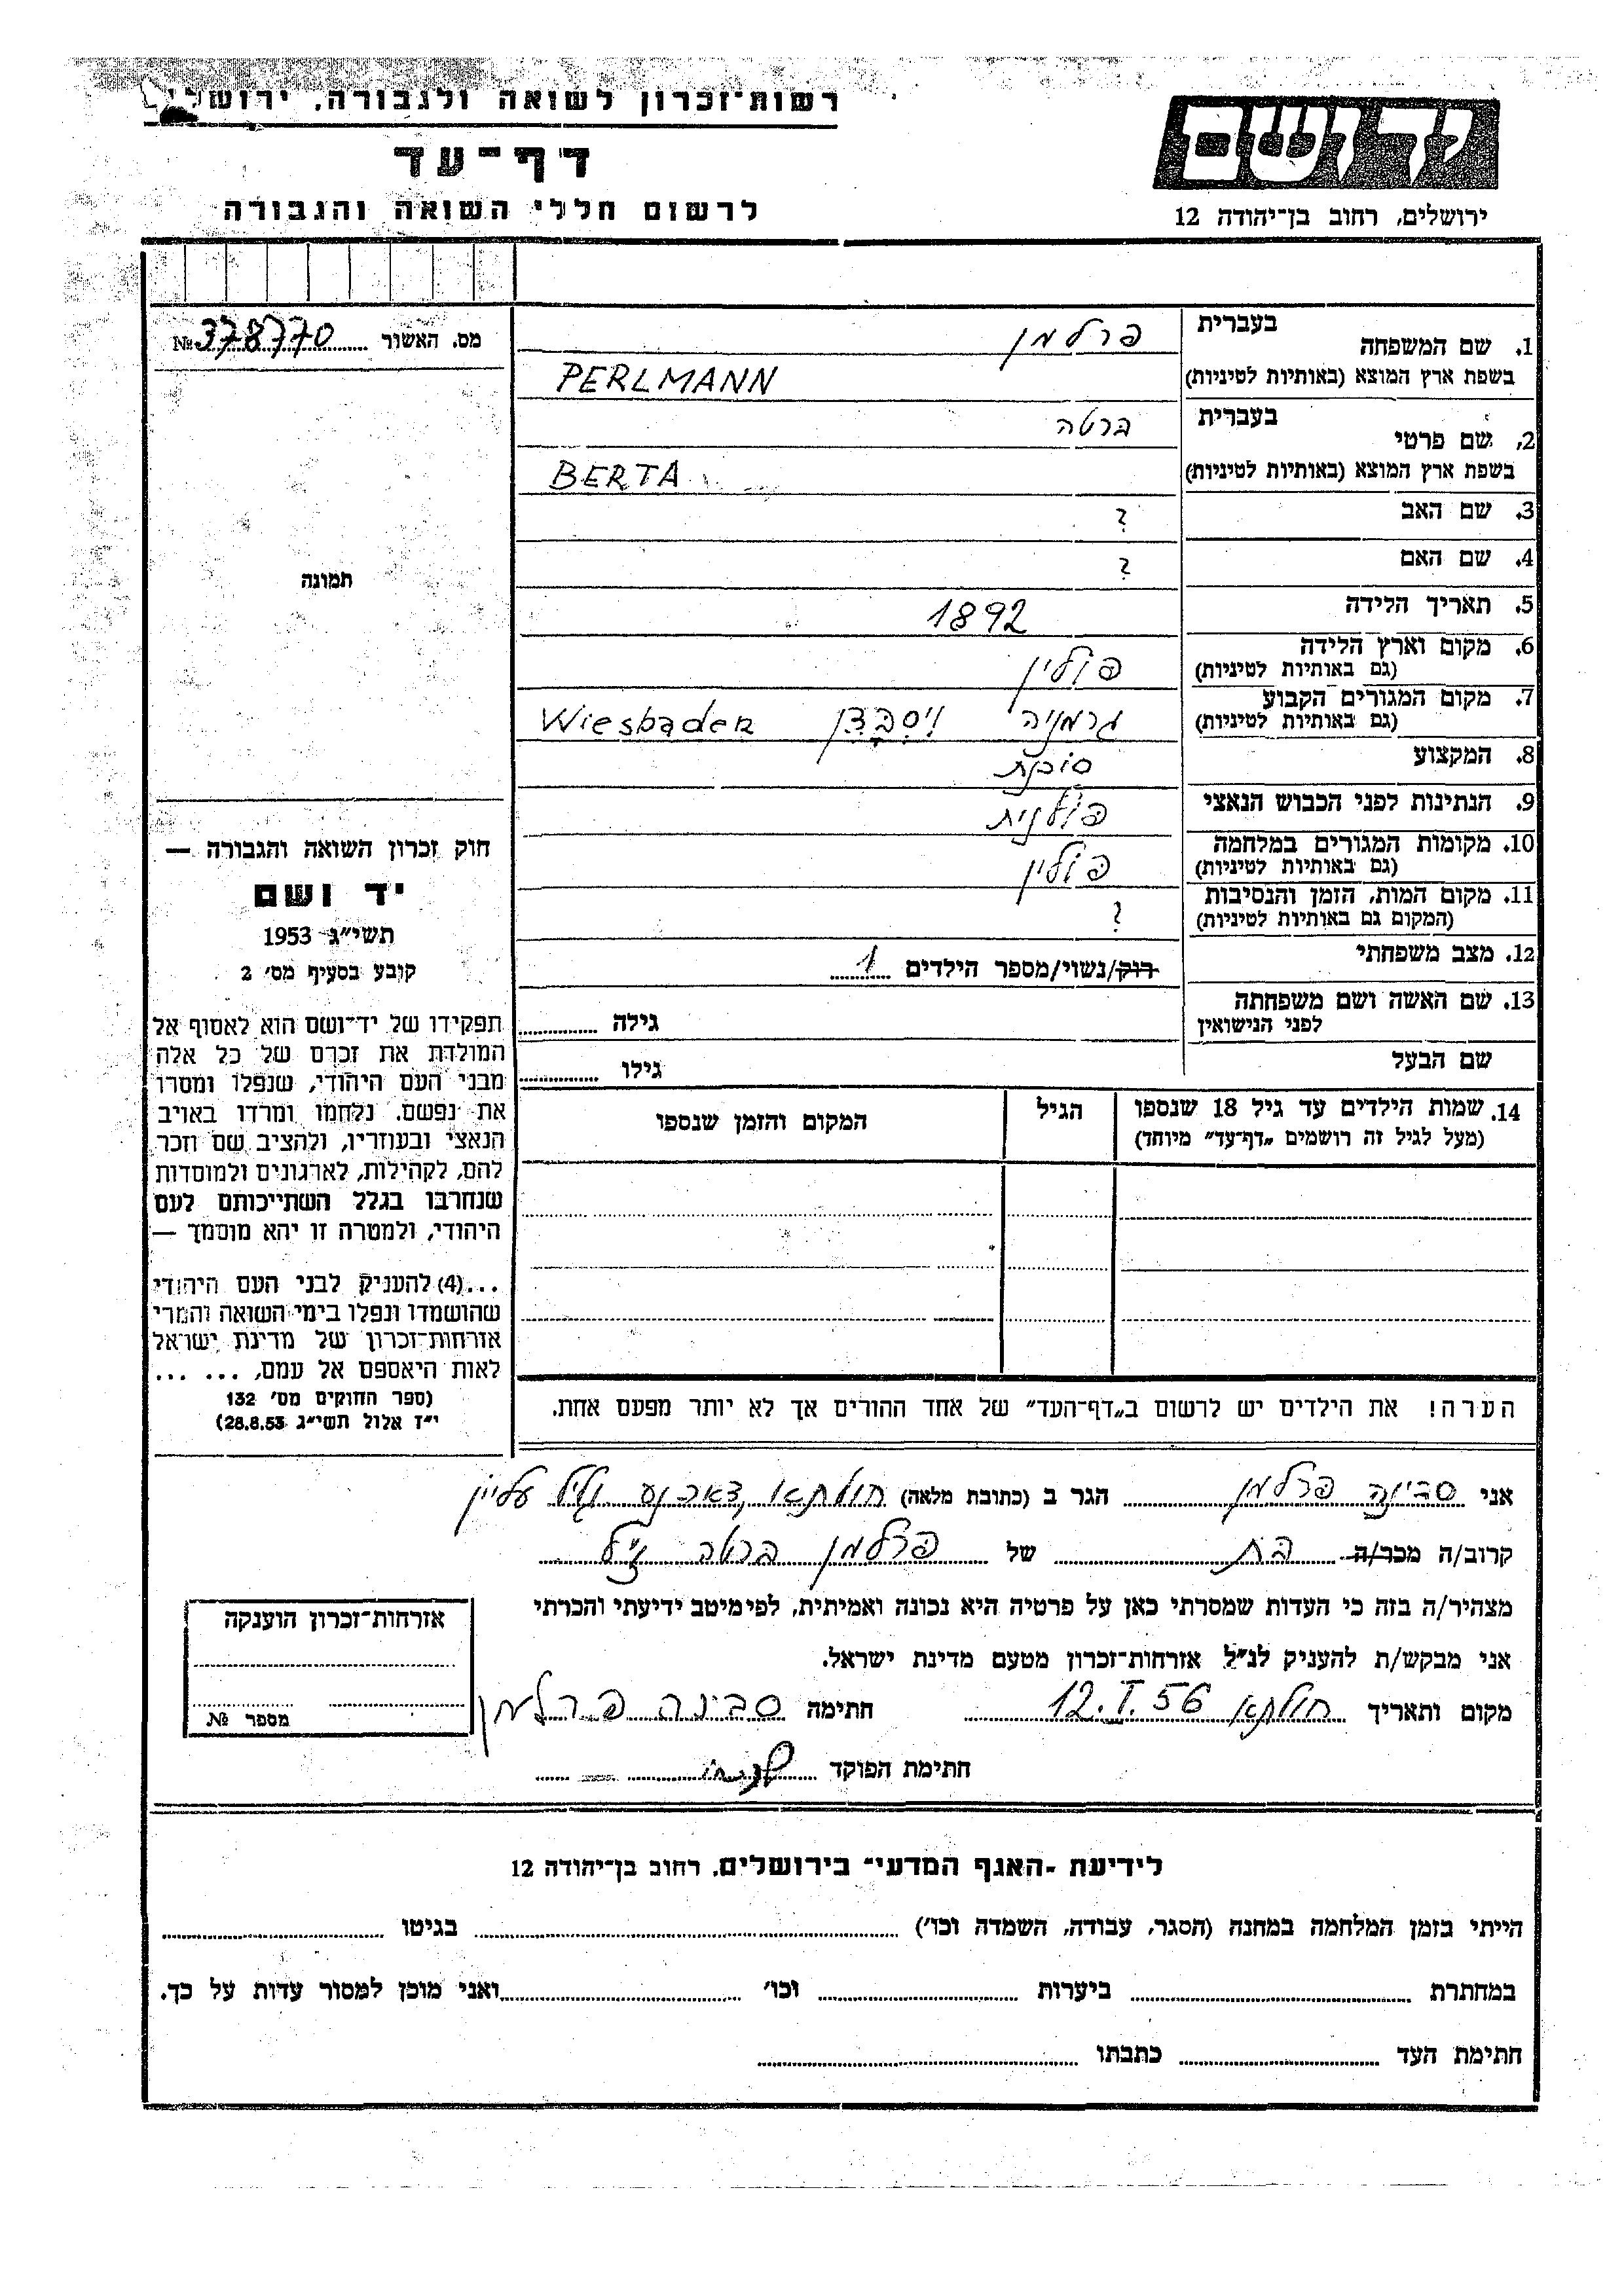 רשות־זכרון לשואה ולגבורה, ירושלי
דף־עד
לרשום חללי השואה והגבורה
יד ושם
ירושלים, רחוב בן־יהודה 12
מס. האשור № 378770
תמונה
חוק זכרון השואה והגבורה —
יד ושם
תשי״ג 1953
קובע בסעיף מס׳ 2
תפקידו של יד־ושם הוא לאסוף אל
המולדת את זכרם של כל אלה
מבני העם היהודי, שנפלו ומסרו
את נפשם, נלחמו ומרדו באויב
הנאצי ובעוזריו, ולהציב שם וזכר
להם, לקהילות, לארגונים ולמוסדות
שנחרבו בגלל השתייכותם לעם
היהודי, ולמטרה זו יהא מוסמך —
...(4) להעניק לבני העם היהודי
שהושמדו ונפלו בימי השואה והמרי
אזרחות־זכרון של מדינת ישראל
לאות היאספם אל עמם, ... ...
(ספר החוקים מס׳ 132
י״ד אלול תשי״ג 28.8.53)
1. שם המשפחה בעברית פרלמן
בשפת ארץ המוצא (באותיות לטיניות) PERLMANN
2. שם פרטי בעברית ברטה
בשפת ארץ המוצא (באותיות לטיניות) BERTA
3. שם האב ?
4. שם האם ?
5. תאריך הלידה 1892
6. מקום וארץ הלידה
(גם באותיות לטיניות) פולין
7. מקום המגורים הקבוע
(גם באותיות לטיניות) גרמניה ויסבדן Wiesbaden
8. המקצוע סוכנת
9. הנתינות לפני הכבוש הנאצי פולנית
10. מקומות המגורים במלחמה
(גם באותיות לטיניות) פולין
11. מקום המות, הזמן והנסיבות
(המקום גם באותיות לטיניות) ?
12. מצב משפחתי רוק/נשוי/מספר הילדים 1
13. שם האשה ושם משפחתה
לפני הנישואין גילה
שם הבעל גילו
14. שמות הילדים עד גיל 18 שנספו
(מעל לגיל זה רושמים „דף־עד” מיוחד)
הגיל
המקום והזמן שנספו
הערה! את הילדים יש לרשום ב„דף־העד” של אחד ההורים אך לא יותר מפעם אחת.
אני סבינה פרלמן הגר ב (כתובת מלאה) חולתא, ד.א. גליל עליון
קרוב/ה מכר/ה בת של פרלמן ברטה ז״ל
מצהיר/ה בזה כי העדות שמסרתי כאן על פרטיה היא נכונה ואמיתית, לפי מיטב ידיעתי והכרתי
אני מבקש/ת להעניק לנ״ל אזרחות־זכרון מטעם מדינת ישראל.
מקום ותאריך חולתא 12.I.56 חתימה סבינה פרלמן
חתימת הפוקד
אזרחות־זכרון הוענקה
מספר №
לידיעת -האגף המדעי־ בירושלים, רחוב בן־יהודה 12
הייתי בזמן המלחמה במחנה (הסגר, עבודה, השמדה וכו׳) בגיטו
במחתרת ביערות וכו׳ ואני מוכן למסור עדות על כך.
חתימת העד כתבתו